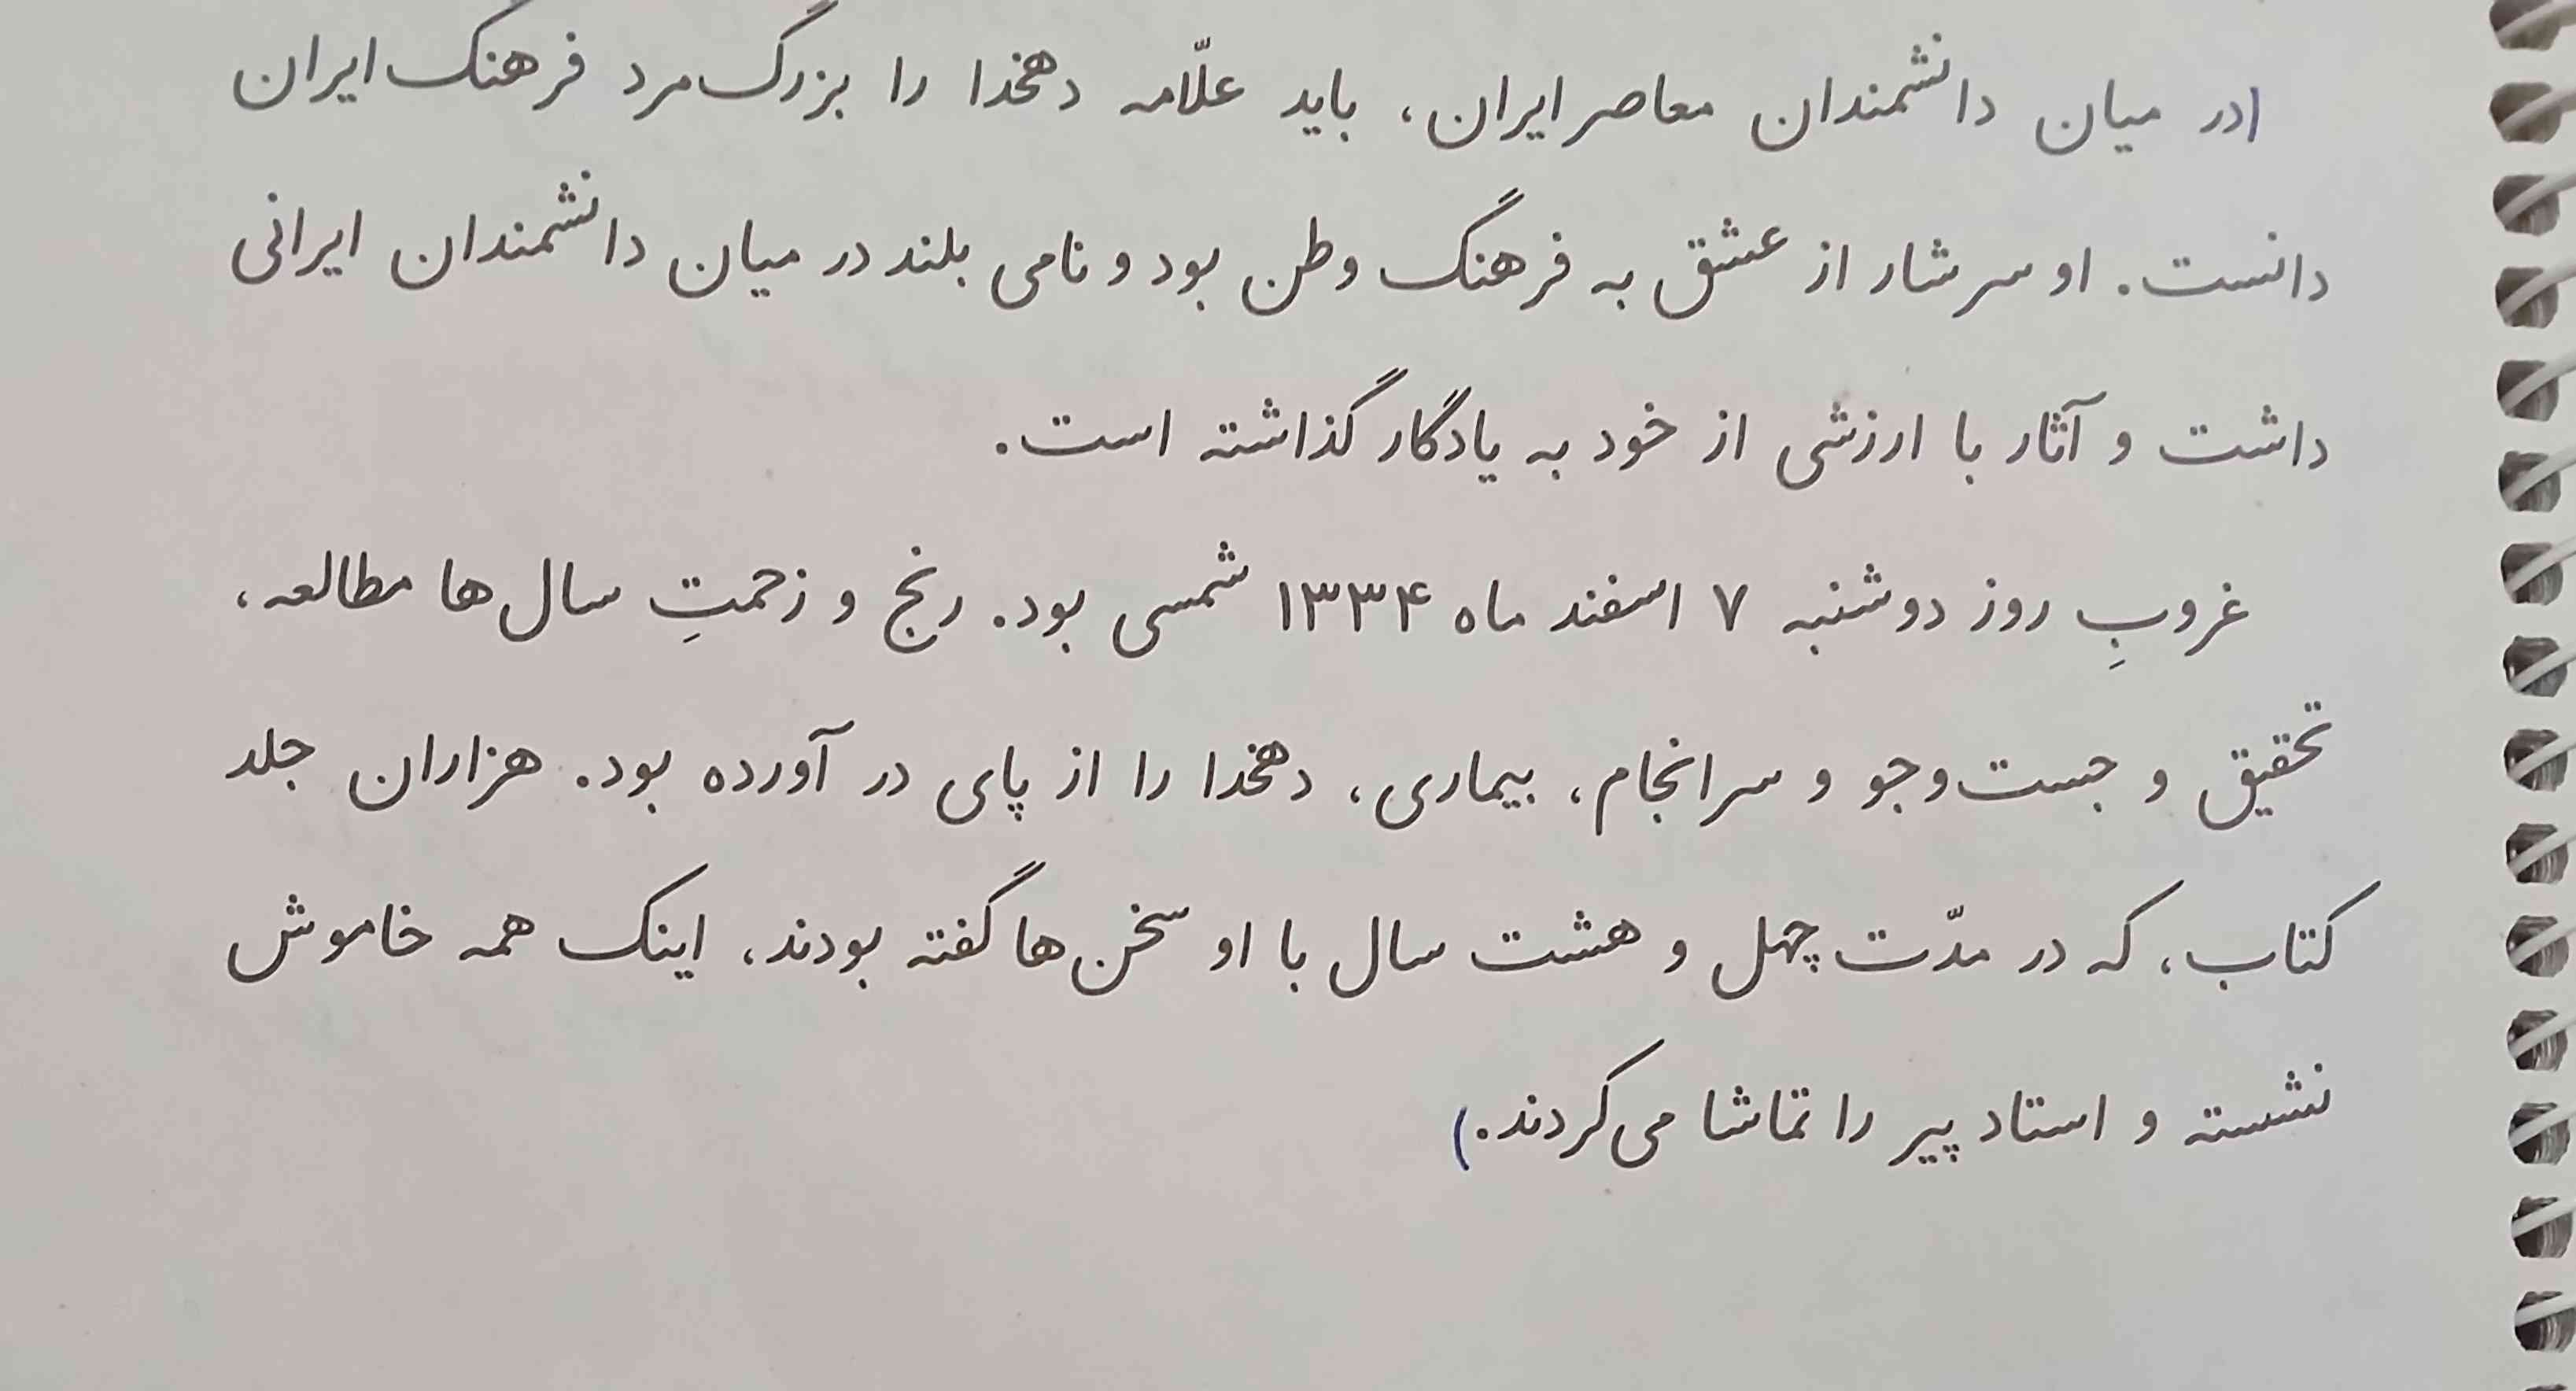 (در میان دانشمندان معاصر ایران، باید علّامه دهخدا را بزرگ‌مرد فرهنگ ایران
دانست. او سرشار از عشق به فرهنگ وطن بود و نامی بلند در میان دانشمندان ایرانی
داشت و آثار با ارزشی از خود به یادگار گذاشته است.
غروبِ روز دوشنبه ۷ اسفند ماه ۱۳۳۴ شمسی بود. رنج و زحمتِ سال‌ها مطالعه،
تحقیق و جست‌وجو و سرانجام، بیماری، دهخدا را از پای در آورده بود. هزاران جلد
کتاب، که در مدّت چهل و هشت سال با او سخن‌ها گفته بودند، اینک همه خاموش
نشسته و استاد پیر را تماشا می‌کردند.)